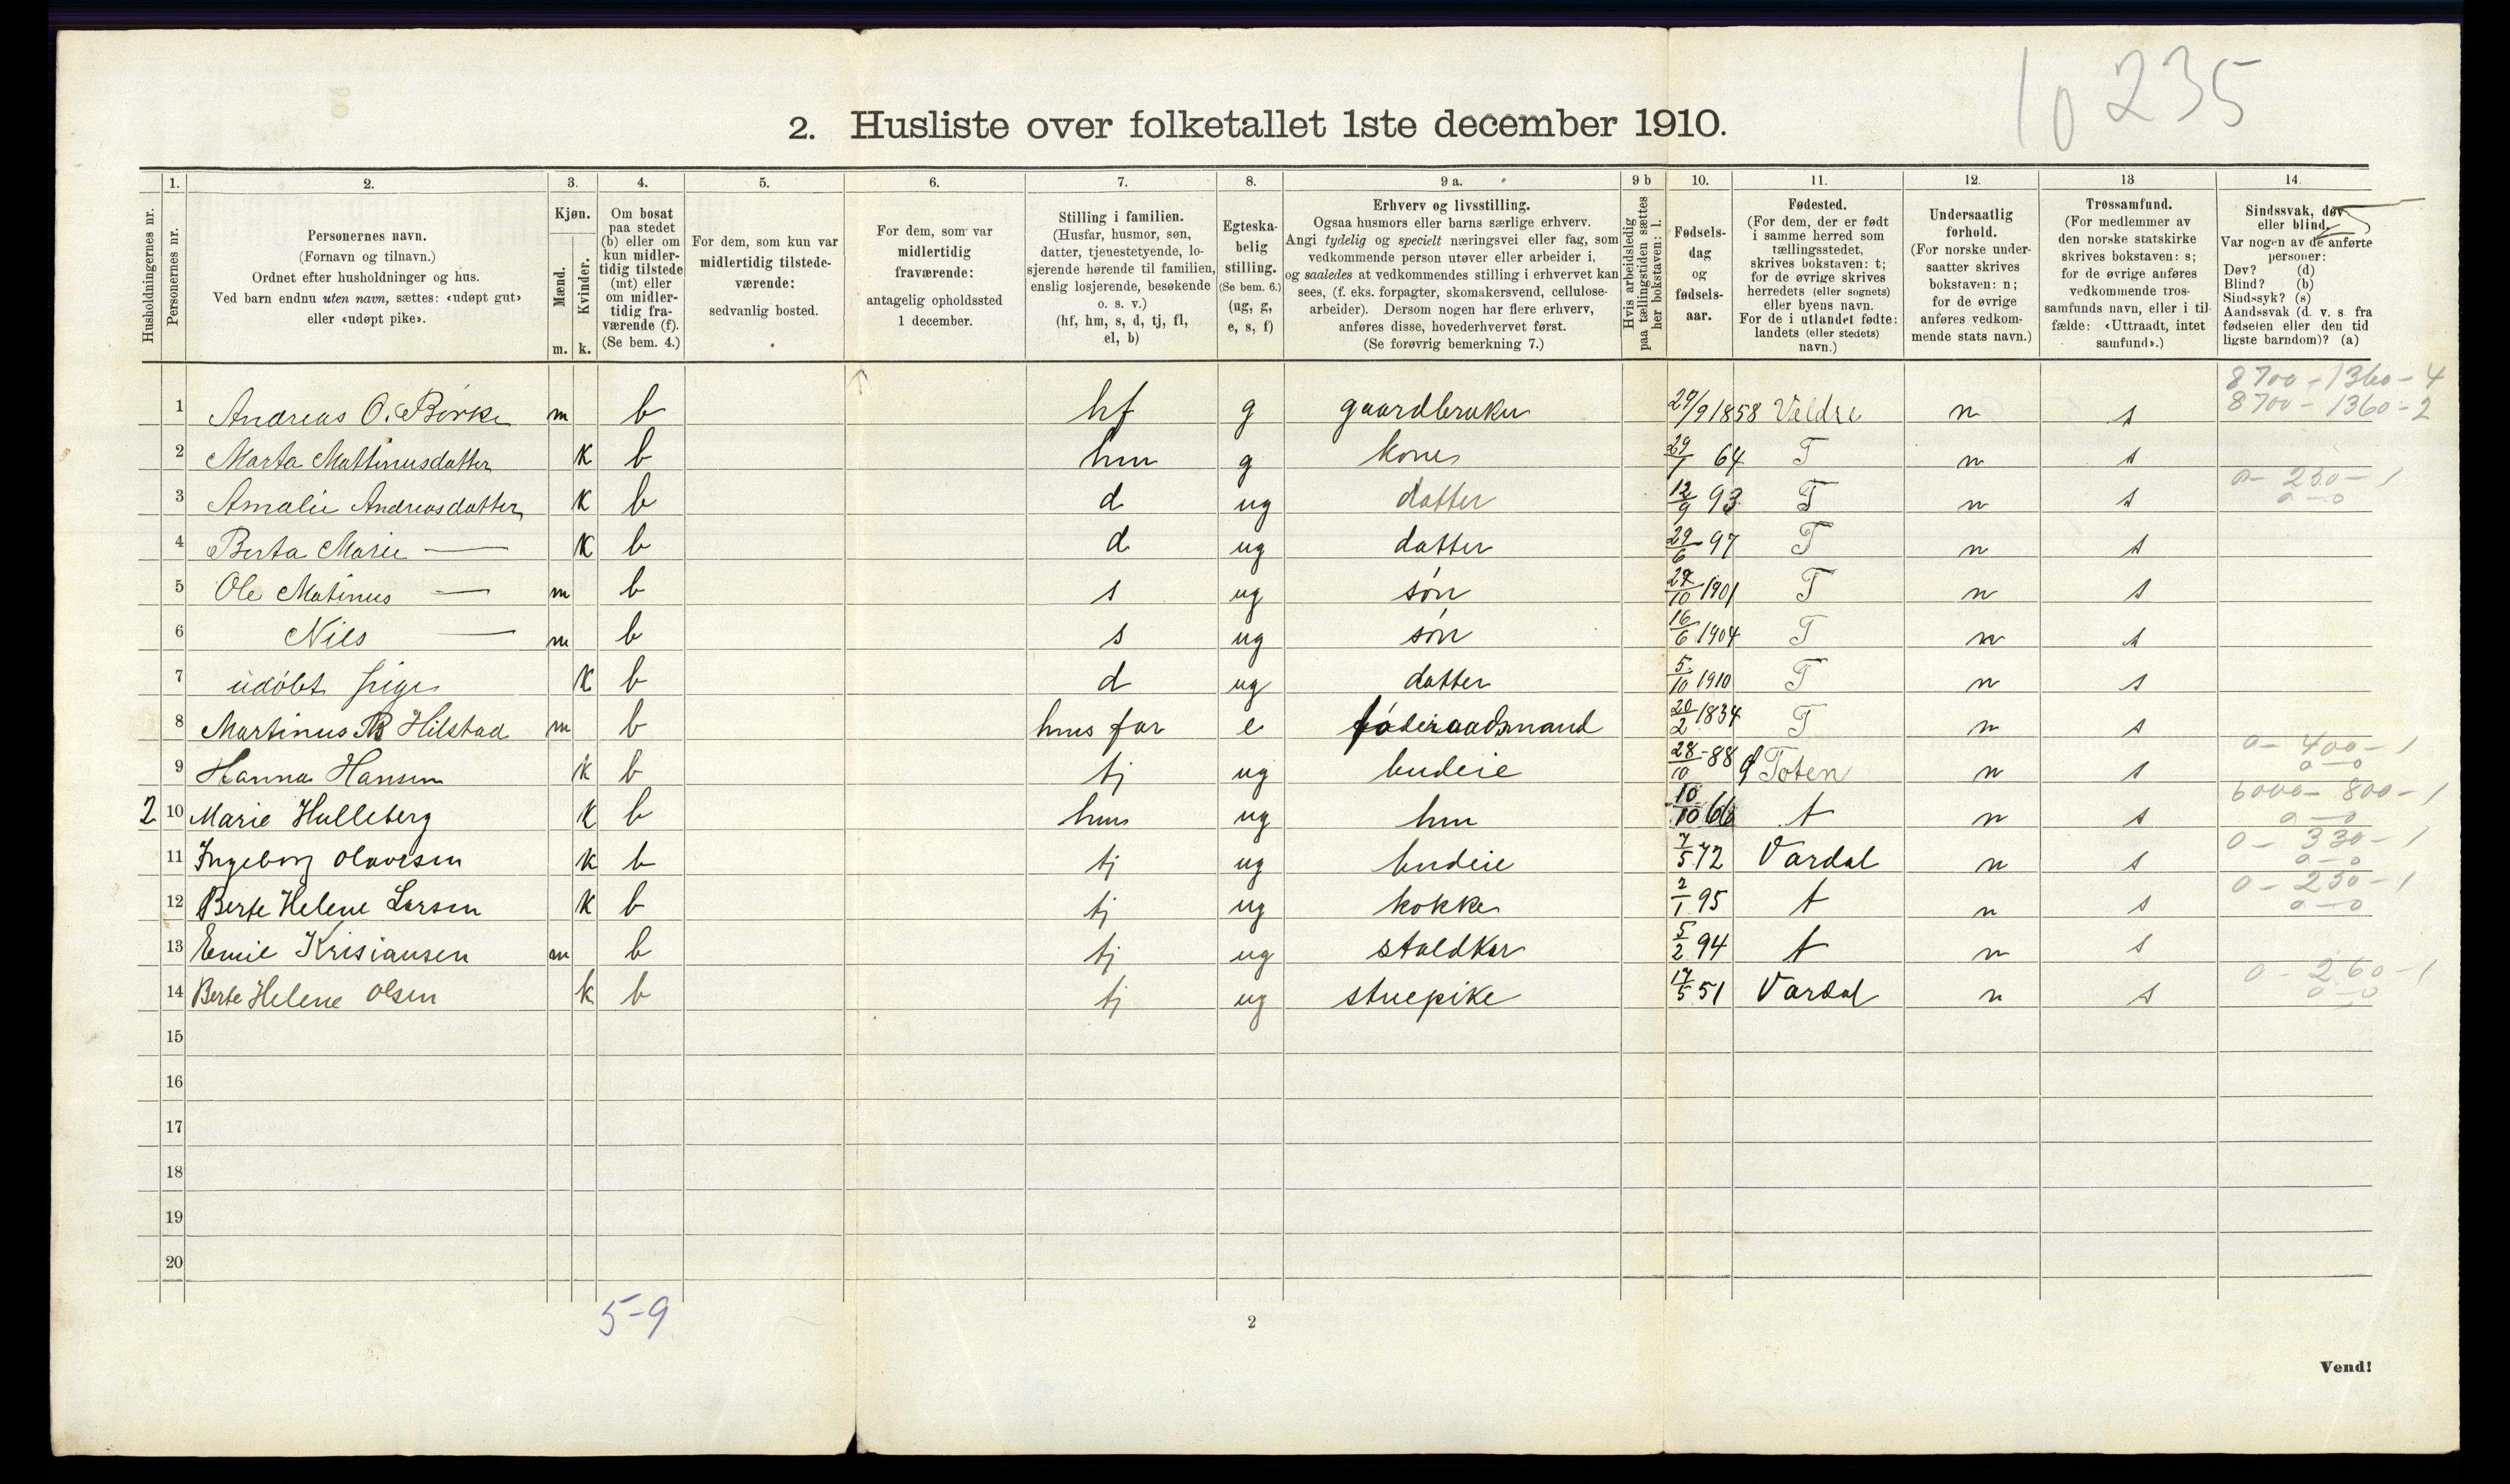 10 235
2. Husliste over folketallet 1ste december 1910.
Husholdningernes nr.
1. Personernes nr.
2. Personernes navn. (Fornavn og tilnavn.) Ordnet efter husholdninger og hus. Ved barn endnu uten navn, sættes: «udøpt gut» eller «udøpt pike».
3. Kjøn. Mænd. m. Kvinder. k.
4. Om bosat paa stedet (b) eller om kun midlertidig tilstede (mt) eller om midlertidig fraværende (f). (Se bem. 4.)
5. For dem, som kun var midlertidig tilstedeværende: sedvanlig bosted.
6. For dem, som var midlertidig fraværende: antagelig opholdssted 1 december.
7. Stilling i familien. (Husfar, husmor, søn, datter, tjenestetyende, losjerende hørende til familien, enslig losjerende, besøkende o. s. v.) (hf, hm, s, d, tj, fl, el, b)
8. Egteskabelig stilling. (Se bem. 6.) (ug, g, e, s, f)
9 a. Erhverv og livsstilling. Ogsaa husmors eller barns særlige erhverv. Angi tydelig og specielt næringsvei eller fag, som vedkommende person utøver eller arbeider i, og saaledes at vedkommendes stilling i erhvervet kan sees, (f. eks. forpagter, skomakersvend, cellulosearbeider). Dersom nogen har flere erhverv, anføres disse, hovederhvervet først. (Se forøvrig bemerkning 7.)
9 b Hvis arbeidsledig paa tællingstiden sættes her bokstaven: l.
10. Fødselsdag og fødselsaar.
11. Fødested. (For dem, der er født i samme herred som tællingsstedet, skrives bokstaven: t; for de øvrige skrives herredets (eller sognets) eller byens navn. For de i utlandet fødte: landets (eller stedets) navn.)
12. Undersaatlig forhold. (For norske undersaatter skrives bokstaven: n; for de øvrige anføres vedkommende stats navn.)
13 Trossamfund. (For medlemmer av den norske statskirke skrives bokstaven: s; for de øvrige anføres vedkommende trossamfunds navn, eller i tilfælde: «Uttraadt, intet samfund».)
14. Sindssvak, døv eller blind. Var nogen av de anførte personer: Døv? (d) Blind? (b) Sindssyk? (s) Aandssvak (d. v. s. fra fødselen eller den tidligste barndom)? (a)
8700 - 1360 - 4
1 Andreas O. Børke m b hf g gaardbruker 29/9 1858 Veldre n s 8700 - 1360 - 2
2 Marta Mattinusdatter K b hm g kone 29/1 64 T n s
3 Amalie Andreasdatter K b d ug datter 12/9 93 T n s 0 - 230 - 1 0 - 0
4 Berta Marie — K b d ug datter 29/6 97 T n s
5 Ole Matinus — m b s ug søn 29/10 1901 T n s
6 Nils — m b s ug søn 16/6 1904 T n s
7 udöbt pige K b d ug datter 5/10 1910 T n s
8 Martinus B Hilstad m b hus far e föderaadsmand 20/2 1834 T n s
9 Hanna Hansen k b tj ug budeie 28/10 - 88 Toten n s 0 - 400 - 1 0 - 0
2 10 Marie Hulleberg K b hm ug hm 10/10 66 t n s 6000 - 800 - 1 0 - 0
11 Ingeborg Olavesen k b tj ug budeie 7/5 72 Vardal n s 0 - 330 - 1 0 - 0
12 Berte Helene Larsen K b tj ug kokke 2/1 95 t n s 0 - 230 - 1 0 - 0
13 Emil Krisiansen m b tj ug staldkar 5/2 94 t n s
14 Berte Helene Olsen k b tj ug stuepike 17/5 51 Vardal n s 0 - 260 - 1 0 - 0
15
16
17
18
19
20
5-9
2
Vend!